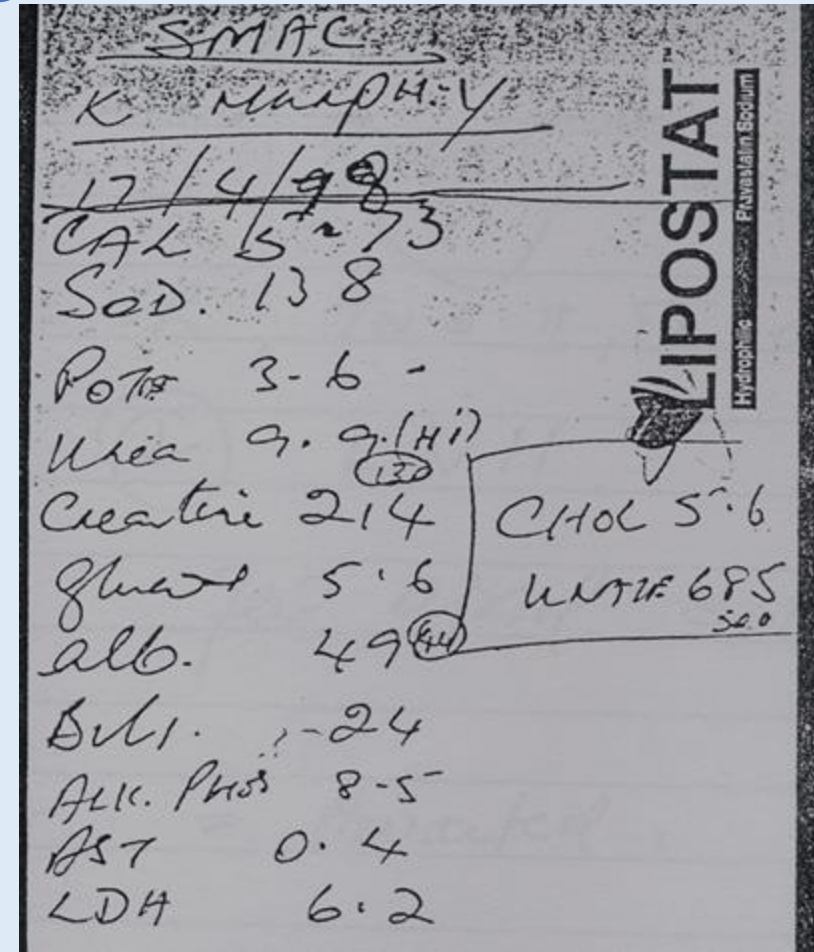 SMAC
K MURPH-Y
17/4/98
CAL 5-73
SOD. 138
POTAS 3-6 -
Urea 9.9 (Hi)
130
Creatine 214
Glucose 5.6
alb. 49 44
Bili. 24
ALK. PHOS 8-5
AST 0.4
LDH 6.2
CHOL 5.6
URATE 685
500
LIPOSTAT™
Hydrophilic Pravastatin Sodium